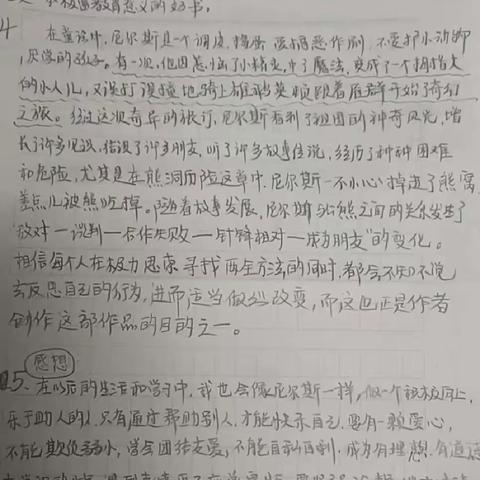 极强教育意义的好书。
4
在童话中,尼尔斯是一个调皮、捣蛋、爱搞恶作剧、不爱护小动物,
厌学的孩子。有一次,他因惹恼了小精灵,中了魔法,变成了一个拇指大
的小人儿,又误打误撞地骑上雄鹅莫顿跟着雁群开始奇幻
之旅。经过这次奇异的旅行,尼尔斯看到了祖国的神奇风光,增
长了许多见识,结识了许多朋友,听了许多故事传说,经历了种种困难
和危险,尤其是在熊洞历险这章中,尼尔斯一不小心掉进了熊窝,
差点儿被熊吃掉。随着故事发展,尼尔斯与熊之间的关系发生了
“敌对—谈判—合作失败—针锋相对—成为朋友”的变化。
相信每个人在极力思索寻找两全方法的同时,都会不知不觉
去反思自己的行为,进而适当做出改变,而这也正是作者
创作这部作品的目的之一。
感想
5.在以后的生活和学习中,我也会像尼尔斯一样,做一个积极向上,
乐于助人的人,只有通过帮助别人,才能快乐自己,要有一颗爱心,
不能欺负弱小,学会团结友爱,不能自私自利,成为有理想、有道德